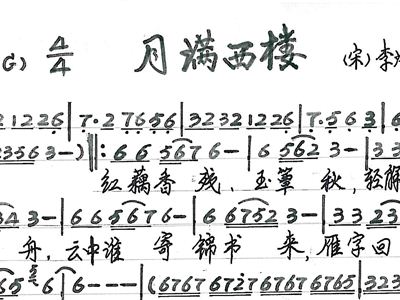 G) 4/4 月满西楼 (宋)李
21226|7·27656|32321226|7·563|6
23563-)‖:6 6 5676-|6 5623-|33
红藕香残,玉簟秋,轻解
343-|6 6 5676-|6 67523-|3323
舟,云中谁寄锦书来,雁字回
65 6|6---|(6767 6727 6767 6765|323